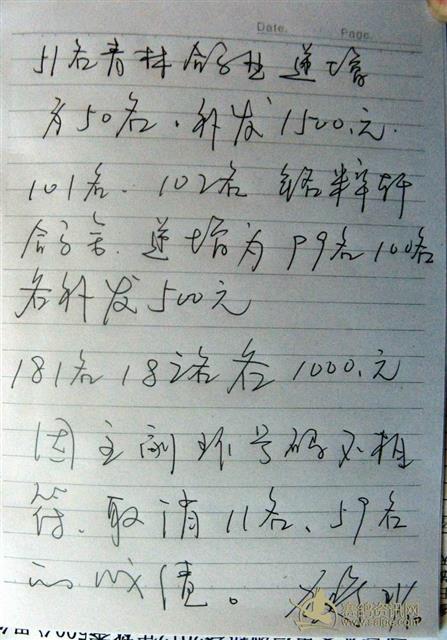 Date. Page.
51名青林鸽业递增
为50名.补发1500.元.
101名.102名 铭粹轩
鸽舍.递增为99名100名
各补发500元
181名182名各1000.元
因主副环号码不相
符.取消11名、59名
的成绩。
赛鸽资讯网